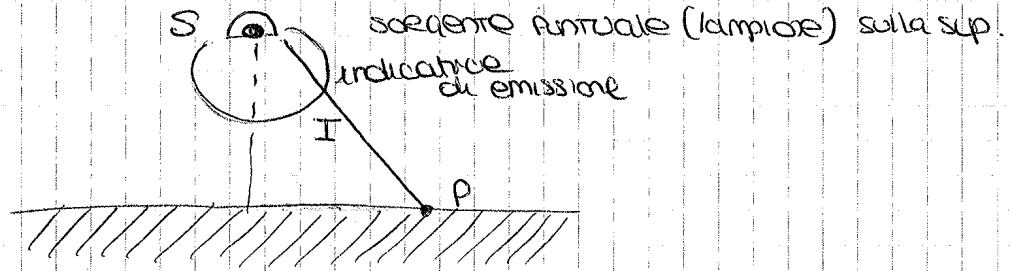 S sorgente puntuale (lampione) sulla sup.
indicatrice
di emissione
I
P